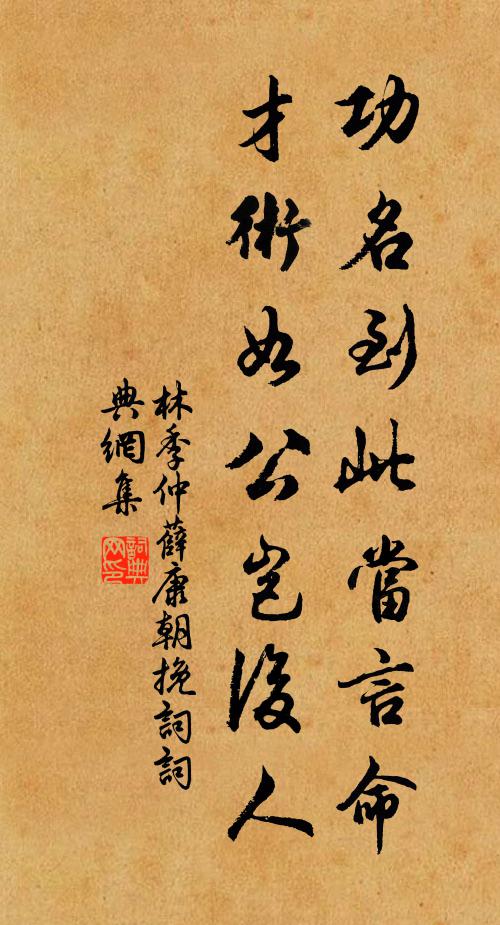 功名到此當言命
才術如公豈後人
林季仲薛康朝挽詞詞
典網集
詞典
网印